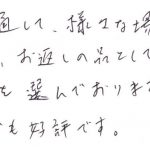 通して、様々な場
、お返しの品として
を選んでおりま
も好評です。